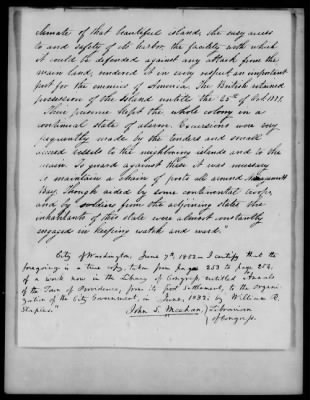 climate of that beautiful island, the easy access
to and safety of its harbor, the facility with which
it could be defended against any attack from the
main land, rendered it in every respect an important
post for the enemies of America. The British retained
possession of the Island untill the 25th of Oct. 1779.
Their presence kept the whole colony in a
continued state of alarm. Excursions were very
frequently made by the tenders and small
armed vessels to the neighboring islands and to the
main. To guard against them it was necessary
to maintain a chain of posts all around Narragansett
Bay. Though aided by some continental troops,
and by soldiers from the adjoining states the
inhabitants of this state were almost constantly
engaged in keeping watch and ward."
City of Washington, June 7th 1852. I certify that the
foregoing is a true copy, taken from pages 253 to 254,
of a work now in the Library of Congress, entitled Annals
of the Town of Providence, from its first Settlement, to the Organi-
zation of the City Government, in June, 1832; by William R.
Staples."
John S. Meehan, Librarian
of Congress.